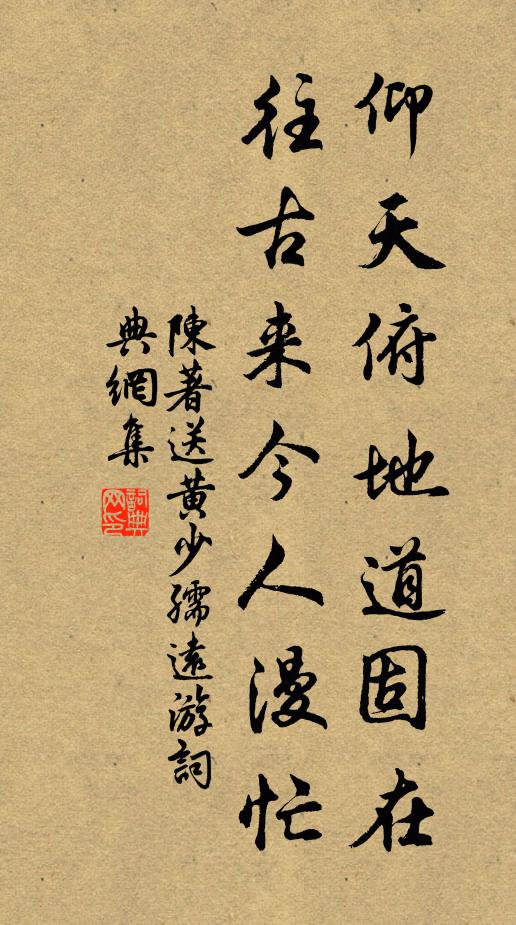 仰天俯地道固在
往古来今人漫忙
陳著送黄少孺遠游詞
典網集
詞典網印